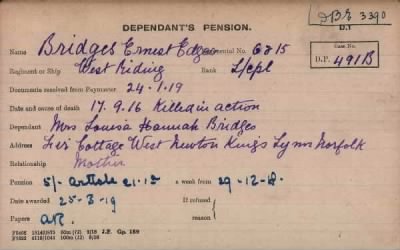 DEPENDANT'S PENSION.
DBE 3390
D.1
Name Bridges Ernest Edgar Regimental No. 6215
Case No.
D.P. 491B
Regiment or Ship West Riding Rank L/cpl
Documents received from Paymaster 24.1.19
Date and cause of death 17.9.16 Killed in action
Dependant Mrs Louisa Hannah Bridges
Address Cottage West Newton Kings Lynn Norfolk
Relationship Mother
Pension 5/- article 21.1 a week from 29-12-18.
Date awarded 25-3-19 If refused
Papers reason
J.P. Gp. 189